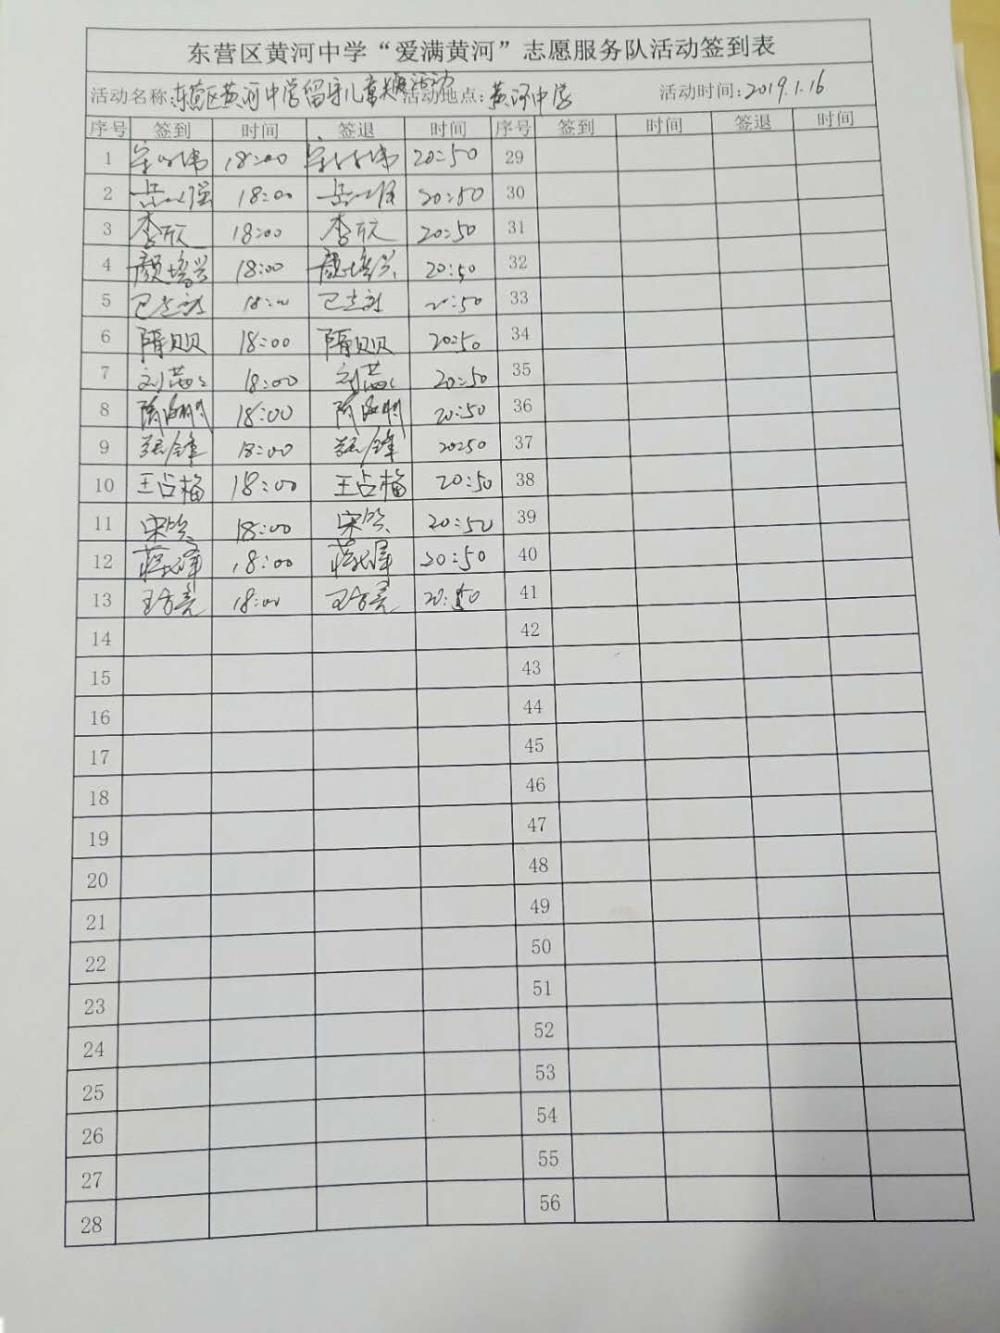 东营区黄河中学“爱满黄河”志愿服务队活动签到表
活动名称:东营区黄河中学留守儿童关爱活动 活动地点:黄河中学 活动时间:2019.1.16
序号 签到 时间 签退 时间 序号 签到 时间 签退 时间
1 18:00 20:50 29
2 18:00 20:50 30
3 李欣 18:00 李欣 20:50 31
4 颜培兴 18:00 颜培兴 20:50 32
5 18:00 20:50 33
6 隋贝贝 18:00 隋贝贝 20:50 34
7 18:00 20:50 35
8 18:00 20:50 36
9 张锋 18:00 张锋 20:50 37
10 王占梅 18:00 王占梅 20:50 38
11 18:00 20:50 39
12 18:00 20:50 40
13 18:00 20:50 41
14 42
15 43
16 44
17 45
18 46
19 47
20 48
21 49
22 50
23 51
24 52
25 53
26 54
27 55
28 56